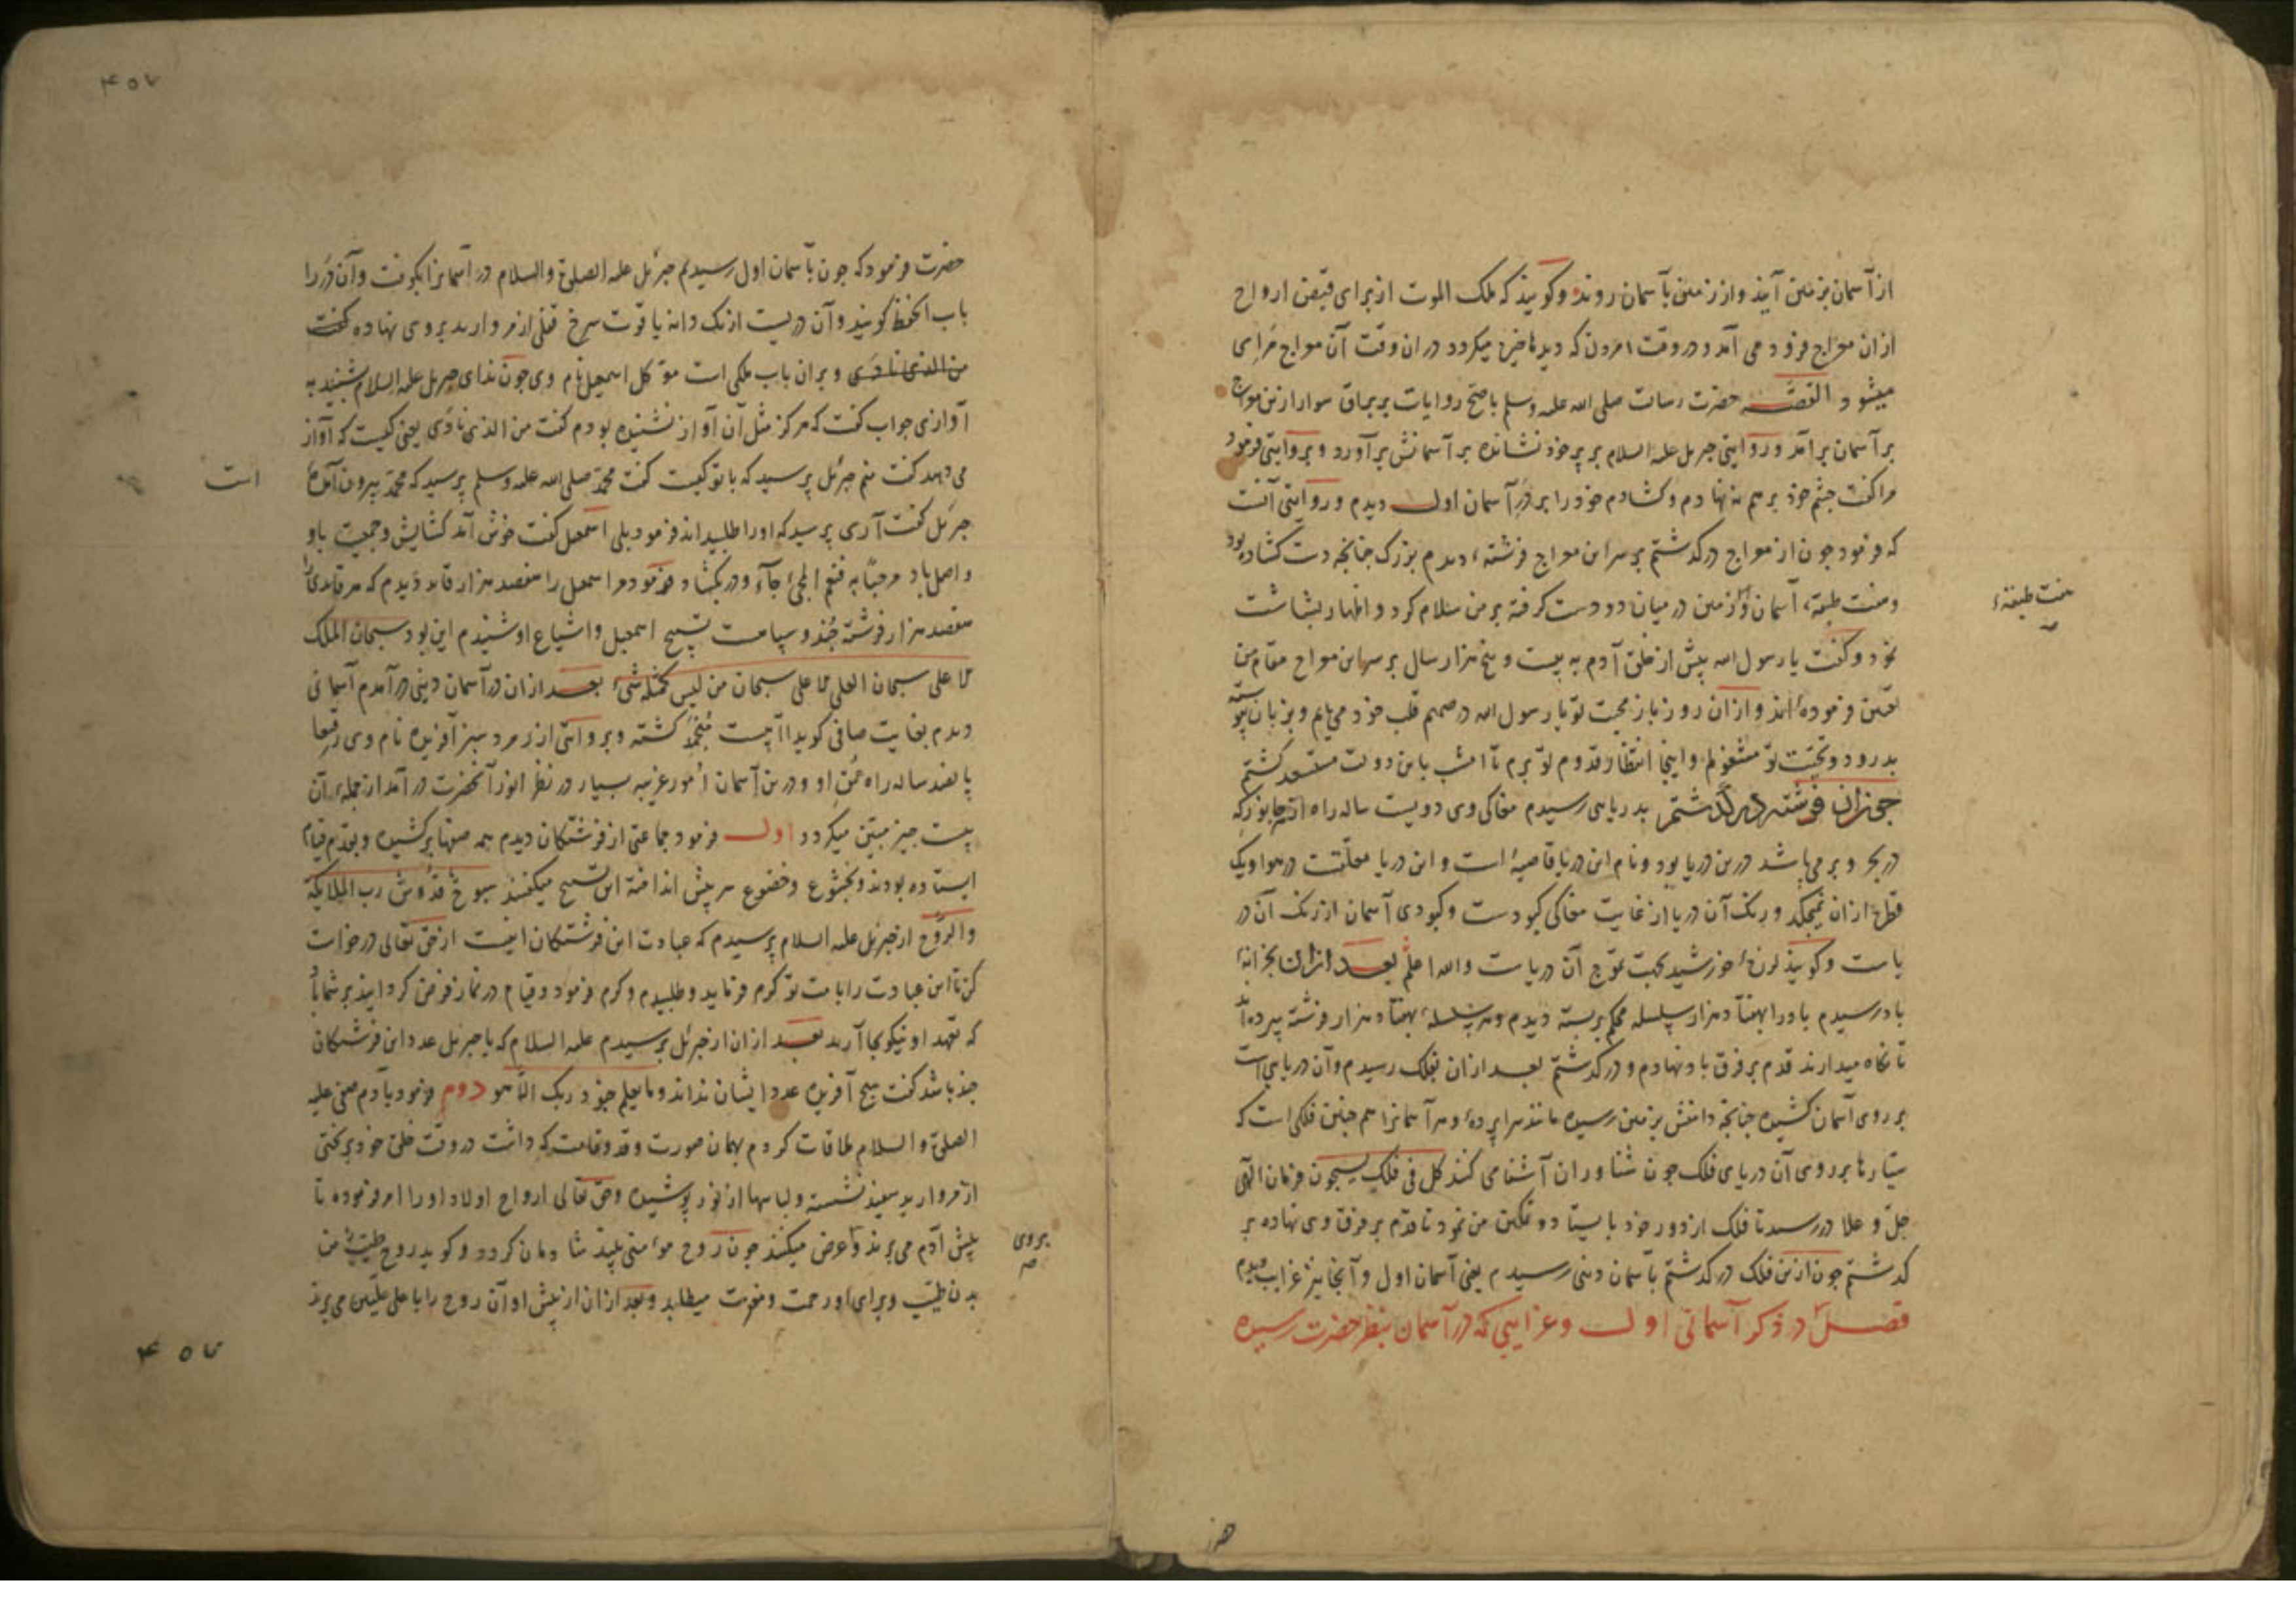 از آسمان بزمین آیند و از زمین بآسمان روند و گویند که ملک الموت از برای قبض ارواح
ازان معراج فرود می آمد و در وقت مردن که دیدها خیره میگردد دران وقت آن معراج مرئی
میشود القصه حضرت رسالت صلی الله علیه وسلم باصح روایات بر براق سوار ازین معراج
بر آسمان برآمد و روایتی جبریل علیه السلام بر پر خود نشانده بر آسمانش برآورد و بروایتی فرمود
مرا گفت چشم خود بر هم نه نهادم و گشادم خود را بر در آسمان اول دیدم و روایتی آنست
که فرمود چون از معراج درگذشتم بر سر این معراج فرشتهٔ دیدم بزرگ چنانچه دست گشاده بود
و هفت طبقهٔ آسمان و زمین در میان دو دست گرفته بر من سلام کرد و اظهار بشاشت
نمود و گفت یا رسول الله پیش از خلق آدم به بیست و پنج هزار سال بر سر این معراج مقام من
تعیین فرموده اند و ازان روز باز محبت تو یا رسول الله در صمیم قلب خود می یابم و بزبان پیوسته
بدرود و تحیت تو مشغولم و اینجا انتظار قدوم تو میبرم تا امشب باین دولت مستسعد گشتم
چون ازان فرشته درگذشتم بدریایی رسیدم مغاکی وی دویست ساله راه از هر جانور که
در بحر و بر می باشد درین دریا بود و نام این دریا قاصیه است و این دریا معلقست در هوا و یک
قطره ازان نمیچکد و رنگ آن دریا از غایت مغاکی کبودست و کبودی آسمان از رنگ آن در
یاست و گویند لرزهٔ خورشید بجهت تموج آن دریاست والله اعلم بعد ازان بخزانهٔ
باد رسیدم باد را بهفتاد هزار سلسله محکم بربسته دیدم و هر سلسلهٔ بهفتاد هزار فرشته سپرده اند
تا نگاه میدارند قدم بر فرق باد نهادم و درگذشتم بعد ازان بفلک رسیدم و آن دریایی است
بر روی آسمان کشیده چنانچه دامنش بزمین رسیده مانند سراپردهٔ و هر آسمانرا هم چنین فلکی است که
سیارها بر روی آن دریای فلک چون شناوران آشنا می کنند کل فی فلک یسبحون فرمان الهی
جل و علا در رسید تا فلک از دور خود بایستاد و تمکین من نمود تا قدم بر فرق وی نهاده بر
گذشتم چون ازین فلک درگذشتم بآسمان دنیی رسیدم یعنی آسمان اول و آنجا نیز غرایب دیدم
فصل در ذکر آسمانی اول و غرایبی که در آسمان بنظر حضرت رسیده
هفت طبقهٔ
۴۵۷
حضرت فرمود که چون بآسمان اول رسیدم جبرئیل علیه الصلوة والسلام در آسمانرا بکوفت و آن در را
باب الحفظ گویند و آن دریست از یک دانه یاقوت سرخ قفلی از مروارید بر وی نهاده گفت
من الذی نادی و بران باب ملکی است موکل اسمعیل نام وی چون ندای جبریل علیه السلام شنید به
آوازی جواب گفت که هرگز مثل آن آواز نشنیده بودم گفت من الذی نادی یعنی کیست که آواز
می دهد گفت منم جبرئیل پرسید که با تو کیست گفت محمد صلی الله علیه وسلم پرسید که محمد بیرون آمده
است
جبرئیل گفت آری پرسید که او را طلبیده اند فرمود بلی اسمعیل گفت خوش آمد گشایش و جمعیت باو
و اصل باد مرحبا به فنعم المجئ جآء و در بگشاد فرمود مر اسمعیل را هفصد هزار قاید دیدم که هر قایدی را
هفصد هزار فرشته جند و سپاهست تسبیح اسمعیل و اشیاع او شنیدم این بود سبحان الملک
الاعلی سبحان العلی الاعلی سبحان من لیس کمثله شیء بعد ازان در آسمان دنیی درآمدم آسمانی
دیدم بغایت صافی گویا آبیست منجمد گشته و بروایتی از زمرد سبز آفریده نام وی رقیعا
پانصد ساله راه عمق او و درین آسمان امور غریبه بسیار در نظر انور آنحضرت درآمد از جملهٔ آن
بیست چیز مبین میگردد اول فرمود جماعتی از فرشتگان دیدم همه صفها برکشیده و بقدم قیام
ایستاده بودند و بخشوع و خضوع سر پیش انداخته این تسبیح میگفتند سبوح قدوس رب الملایکة
والروح از جبرئیل علیه السلام پرسیدم که عبادت این فرشتگان اینست از حق تعالی درخواست
کن تا این عبادت را بامت تو کرم فرماید و طلبیدم و کرم فرمود و قیام در نماز فرض گردانید بر شما باد
که تعهد او نیکو بجا آرید بعد ازان از جبرئیل پرسیدم علیه السلام که یا جبریل عدد این فرشتگان
چند باشد گفت هیچ آفریده عدد ایشان نداند وما یعلم جنود ربک الا هو دوم فرمود بآدم صفی علیه
الصلوة والسلام ملاقات کردم بهمان صورت و قد و قامت که داشت در وقت خلق خود بر تختی
از مروارید سفید نشسته و لباسها از نور پوشیده و حق تعالی ارواح اولاد او را امر فرموده تا
پیش آدم می برند و عرض میکنند چون روح مؤمنی بیند شادمان گردد و گوید روح طیبة من
بروی
بدن طیب و برای او رحمت و مغفرت میطلبد و بعد ازان از پیش او آن روح را باعلی علیین می برند
۴۵۷